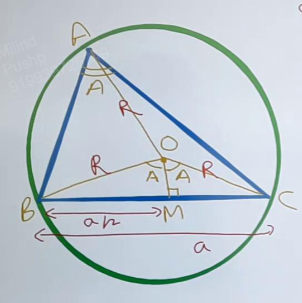 A
A
R
O
R
A
A
R
B
M
C
a/2
a